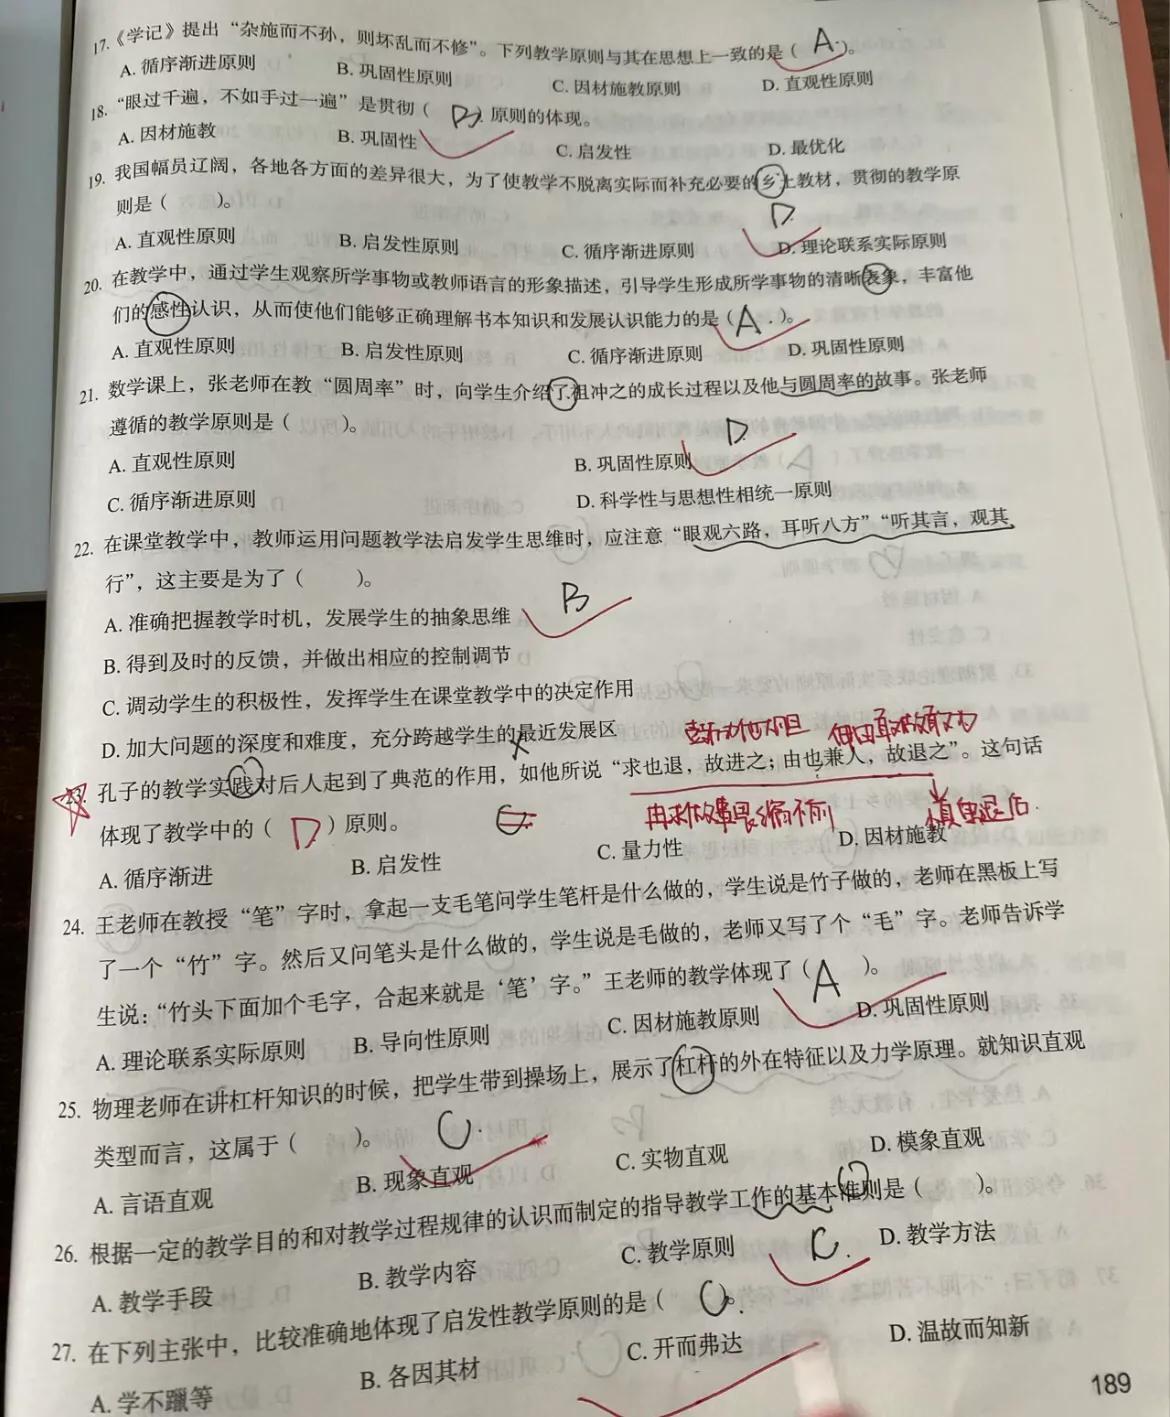 17.《学记》提出“杂施而不孙，则坏乱而不修”。下列教学原则与其在思想上一致的是（ A. ）。
A. 循序渐进原则 B. 巩固性原则 C. 因材施教原则 D. 直观性原则
18. “眼过千遍，不如手过一遍”是贯彻（ B ）原则的体现。
A. 因材施教 B. 巩固性 C. 启发性 D. 最优化
19. 我国幅员辽阔，各地各方面的差异很大，为了使教学不脱离实际而补充必要的乡土教材，贯彻的教学原
则是（ ）。 D
A. 直观性原则 B. 启发性原则 C. 循序渐进原则 D. 理论联系实际原则
20. 在教学中，通过学生观察所学事物或教师语言的形象描述，引导学生形成所学事物的清晰表象，丰富他
们的感性认识，从而使他们能够正确理解书本知识和发展认识能力的是（ A . ）。
A. 直观性原则 B. 启发性原则 C. 循序渐进原则 D. 巩固性原则
21. 数学课上，张老师在教“圆周率”时，向学生介绍了祖冲之的成长过程以及他与圆周率的故事。张老师
遵循的教学原则是（ ）。 D
A. 直观性原则 B. 巩固性原则
C. 循序渐进原则 D. 科学性与思想性相统一原则
22. 在课堂教学中，教师运用问题教学法启发学生思维时，应注意“眼观六路，耳听八方”“听其言，观其
行”，这主要是为了（ ）。 B
A. 准确把握教学时机，发展学生的抽象思维
B. 得到及时的反馈，并做出相应的控制调节
C. 调动学生的积极性，发挥学生在课堂教学中的决定作用
D. 加大问题的深度和难度，充分跨越学生的最近发展区
23. 孔子的教学实践对后人起到了典范的作用，如他所说“求也退，故进之；由也兼人，故退之”。这句话
体现了教学中的（ D ）原则。
冉求做事畏缩不前
A. 循序渐进 B. 启发性 C. 量力性 D. 因材施教
24. 王老师在教授“笔”字时，拿起一支毛笔问学生笔杆是什么做的，学生说是竹子做的，老师在黑板上写
了一个“竹”字。然后又问笔头是什么做的，学生说是毛做的，老师又写了个“毛”字。老师告诉学
生说：“竹头下面加个毛字，合起来就是‘笔’字。”王老师的教学体现了（ A ）。
A. 理论联系实际原则 B. 导向性原则 C. 因材施教原则 D. 巩固性原则
25. 物理老师在讲杠杆知识的时候，把学生带到操场上，展示了杠杆的外在特征以及力学原理。就知识直观
类型而言，这属于（ ）。 C.
A. 言语直观 B. 现象直观 C. 实物直观 D. 模象直观
26. 根据一定的教学目的和对教学过程规律的认识而制定的指导教学工作的基本准则是（ ）。
A. 教学手段 B. 教学内容 C. 教学原则 C. D. 教学方法
27. 在下列主张中，比较准确地体现了启发性教学原则的是（ C ）。
A. 学不躐等 B. 各因其材 C. 开而弗达 D. 温故而知新
189